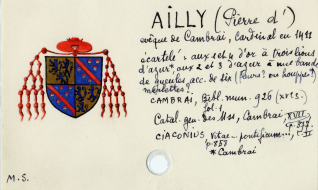 AILLY (Pierre d')
évêque de Cambrai, cardinal en 1411
écartelé : aux 1 et 4 d'or à trois lions
d'azur* aux 2 et 3 d'azur à une bande
de gueules acc. de six (fleurs? ou houppes?)
merlettes
CAMBRAI, Bibl. mun. 926
fol. 1
Catal. gén. des Mss, Cambrai, XVII,
CIACONIUS, Vitae pontificum...,
* Cambrai
M.S.